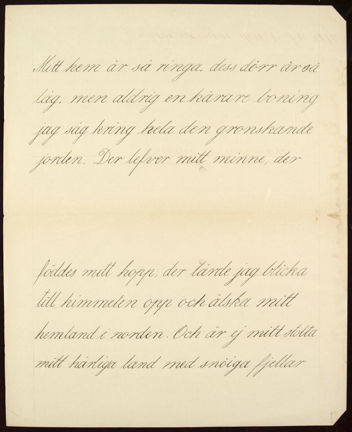 Mitt hem är så ringa, dess dörr är så
låg, men aldrig en kärare boning
jag såg kring hela den grönskande
jorden. Der lefver mitt minne, der
föddes mitt hopp, der lärde jag blicka
till himmelen opp och älska mitt
hemland i norden. Och är ej mitt stolta
mitt härliga land med snöiga fjellar